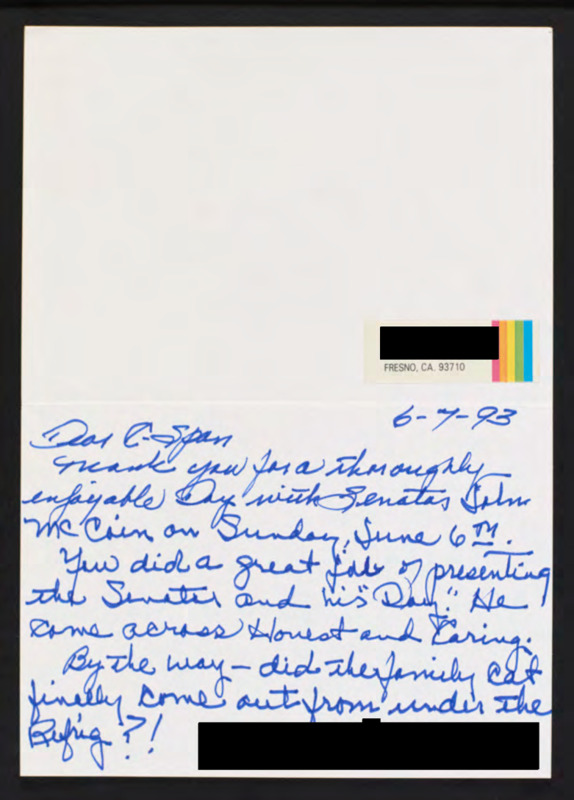 FRESNO, CA. 93710
6-7-93
Dear C-Span
Thank you for a thoroughly
enjoyable Day with Senator John
McCain on Sunday, June 6TH.
You did a great job of presenting
the Senator and his "Day." He
come across Honest and Caring.
By the way - did the family cat
finally come out from under the
Refrig?!